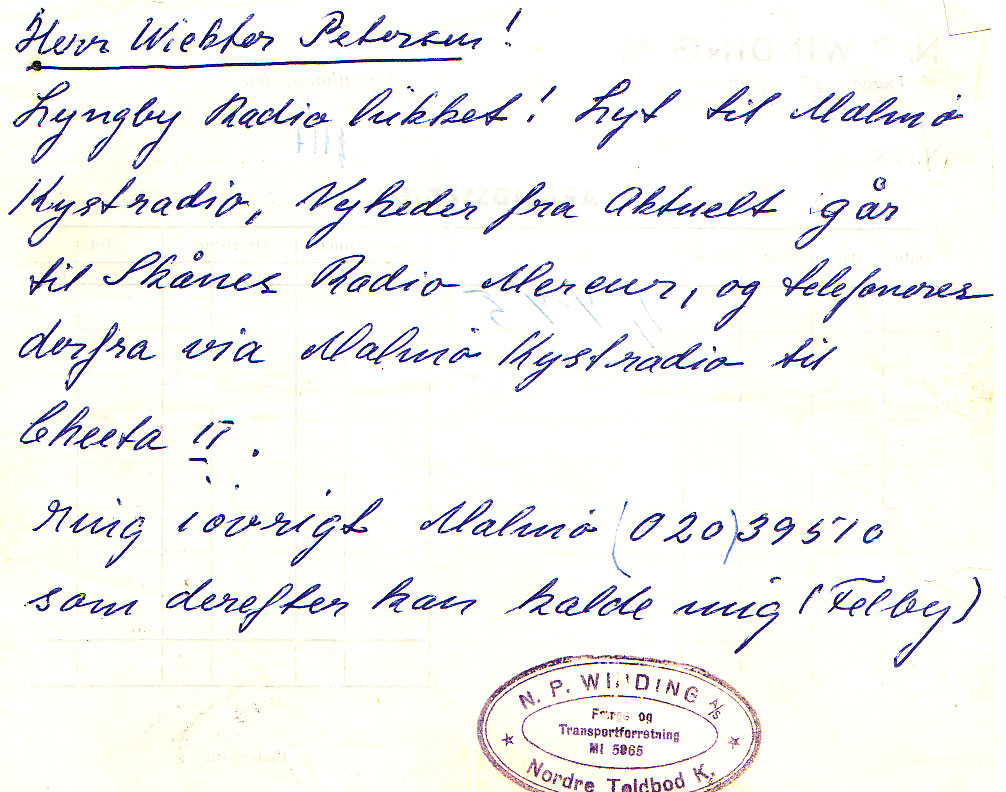 Herr Wickter Petersen!
Lyngby Radio lukket! Lyt til Malmø
Kystradio, Nyheder fra Aktuelt går
til Skånes Radio Mercur, og telefoneres
derfra via Malmø Kystradio til
Cheeta II.
ring iøvrigt Malmø (020) 39510
som derefter kan kalde mig (Felby)
N. P. WINDING A/S
Færge og
Transportforretning
MI 5865
Nordre Toldbod K.